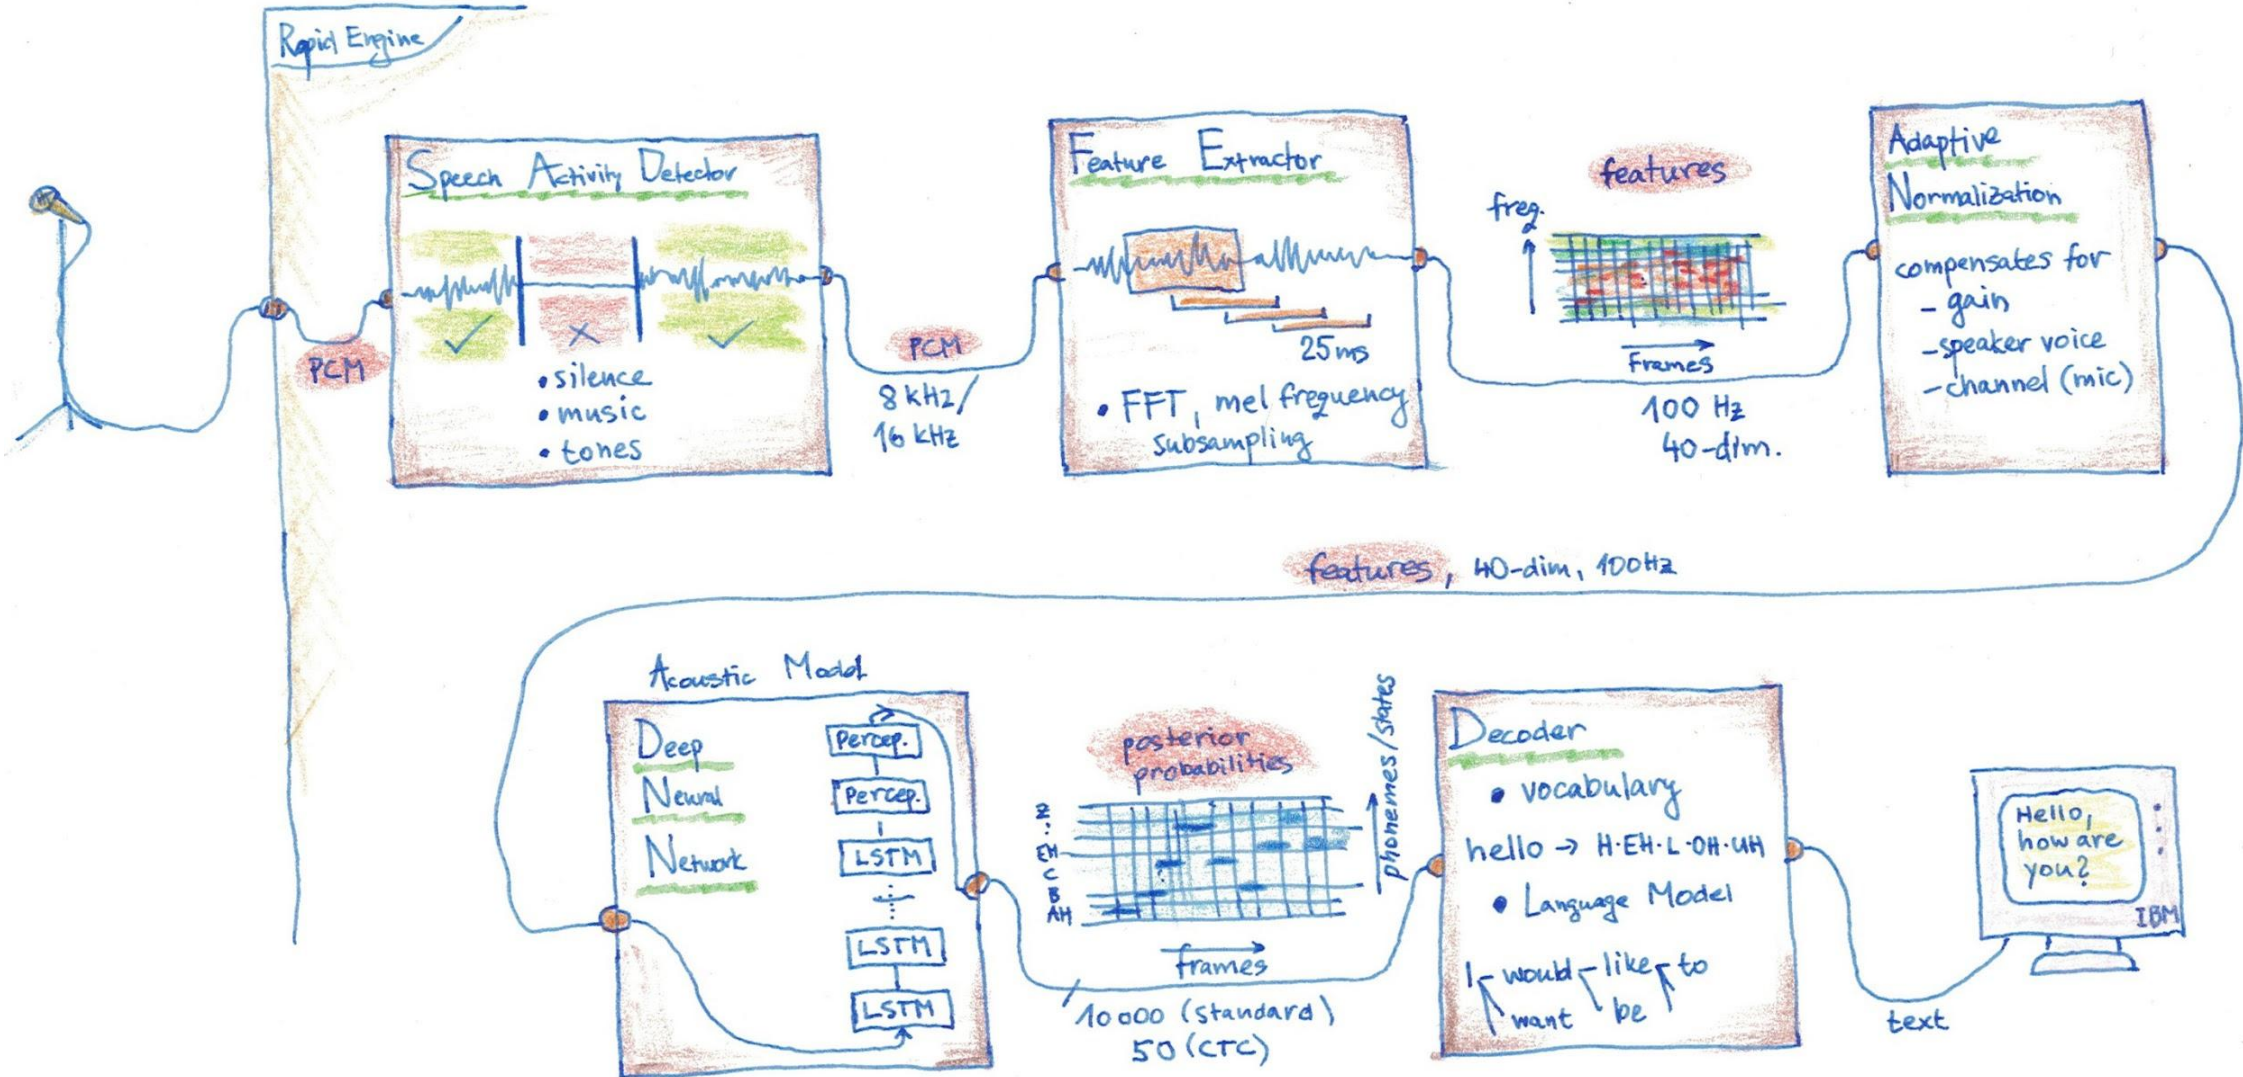 Rapid Engine
PCM
Speech Activity Detector
• silence
• music
• tones
PCM
8 kHz/
16 kHz
Feature Extractor
25ms
• FFT, mel frequency
subsampling
features
freq.
Frames
100 Hz
40-dim.
Adaptive
Normalization
compensates for
- gain
- speaker voice
- channel (mic)
features, 40-dim, 100Hz
Acoustic Model
Deep
Neural
Network
Percep.
Percep.
LSTM
LSTM
LSTM
posterior
probabilities
Z
:
EH
C
B
AH
phonemes/states
frames
10000 (standard)
50 (CTC)
Decoder
• vocabulary
hello → H·EH·L·OH·UH
• Language Model
I would like to
want be
text
Hello,
how are
you?
IBM